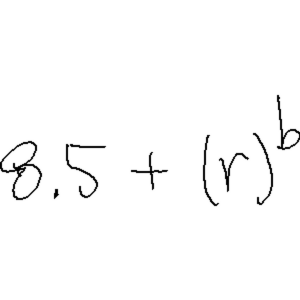 8.5 + (r)^b